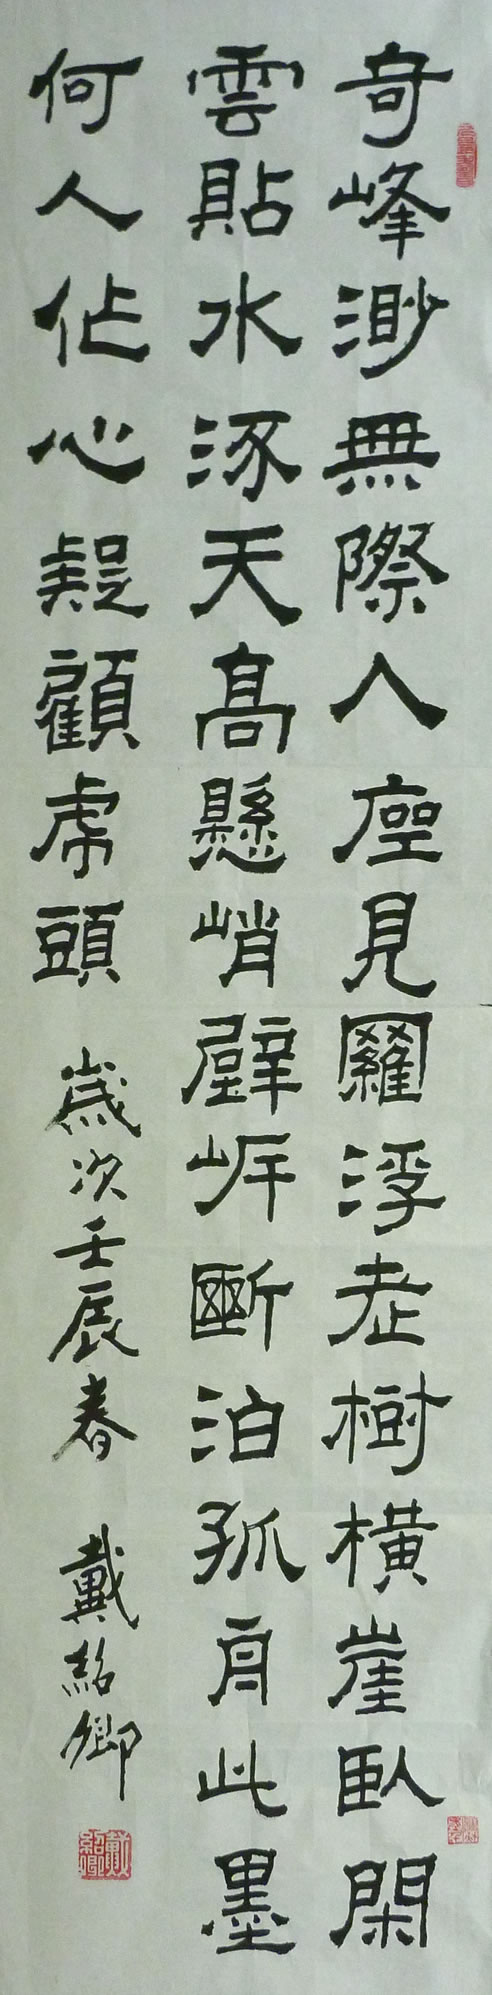 奇峰渺無際入座見羅浮老樹橫崖臥閑
雲貼水流天高懸峭壁岸斷泊孤舟此墨
何人作心疑顧虎頭 歲次壬辰春 戴紹卿